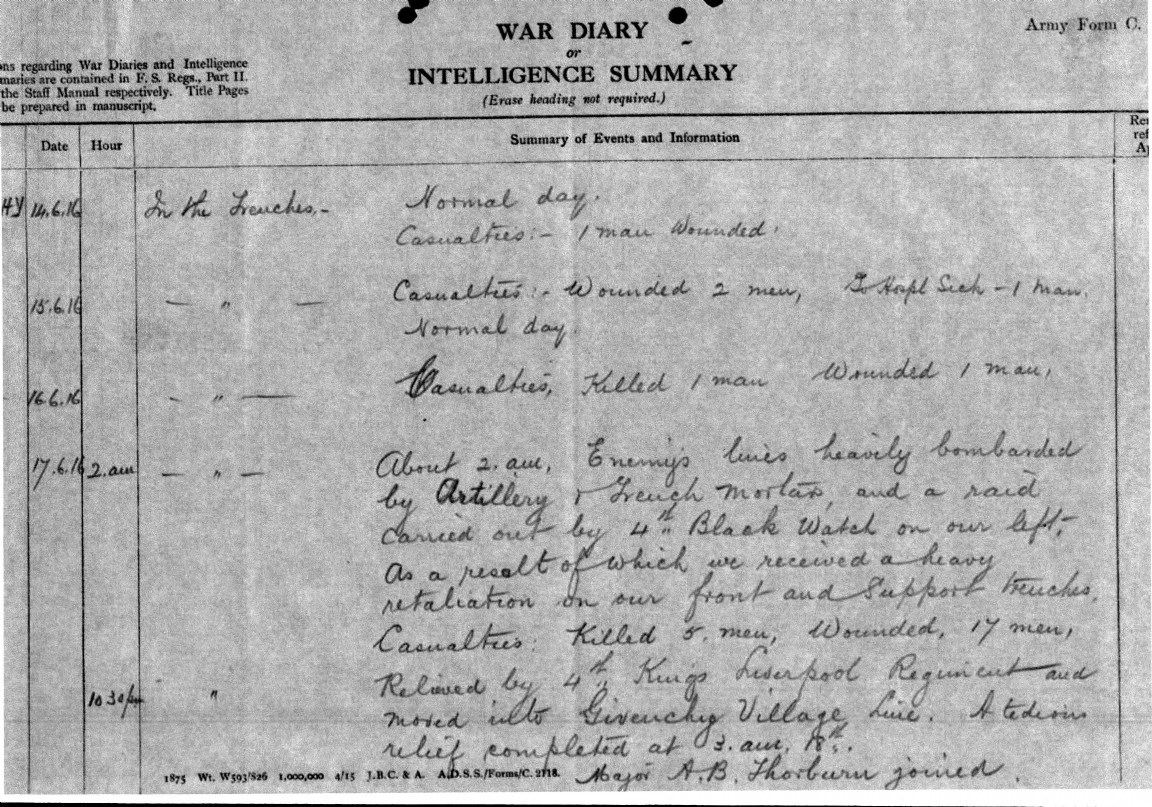 WAR DIARY
or
INTELLIGENCE SUMMARY
(Erase heading not required.)
Army Form C.
ons regarding War Diaries and Intelligence
maries are contained in F. S. Regs., Part II.
the Staff Manual respectively. Title Pages
be prepared in manuscript.
Date Hour Summary of Events and Information
14.6.16 In the Trenches.- Normal day.
Casualties:- 1 man Wounded.
15.6.16 — " — Casualties:- Wounded 2 men, To Hospl Sick - 1 man.
Normal day.
16.6.16 — " — Casualties, Killed 1 man Wounded 1 man,
17.6.16 2.am — " — About 2.am, Enemy's lines heavily bombarded
by Artillery & Trench mortars, and a raid
carried out by 4th Black Watch on our left,
As a result of which we received a heavy
retaliation on our front and Support trenches.
Casualties: Killed 5 men, Wounded, 17 men,
10 30 pm " Relieved by 4th Kings Liverpool Regiment and
moved into Givenchy Village Line. A tedious
relief completed at 3.am, 18th.
1875 Wt. W593/826 1,000,000 4/15 J.B.C. & A. A.D.S.S./Forms/C. 2118. Major A.B. Thorburn joined.